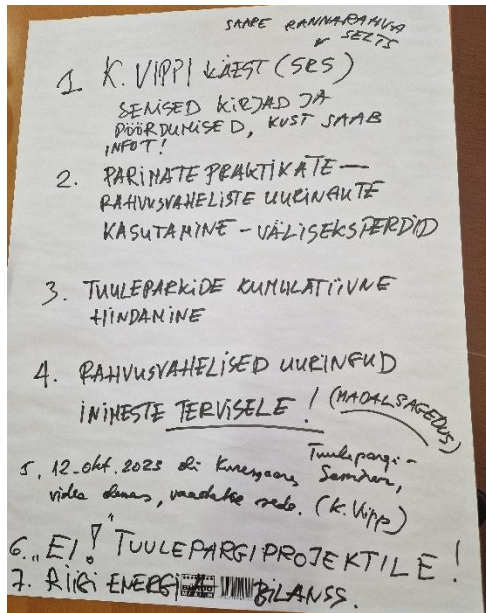 SAARE RANNARAHVA
SELTS
1. K. VIPPI KÄEST (SRS)
SENISED KIRJAD JA
PÖÖRDUMISED, KUST SAAB
INFOT!
2. PARIMATE PRAKTIKATE —
RAHVUSVAHELISTE UURINGUTE
KASUTAMINE - VÄLISEKSPERDID
3. TUULEPARKIDE KUMULATIIVNE
HINDAMINE
4. RAHVUSVAHELISED UURINGUD
INIMESTE TERVISELE! (MADALSAGEDUS)
5. 12. okt. 2023 oli Kuressaares Tuulepargi-
Seminar,
video olemas, vaadake seda. (K. Vipp)
6. "EI!" TUULEPARGIPROJEKTILE!
7. RIIGI ENERGI BILANSS.